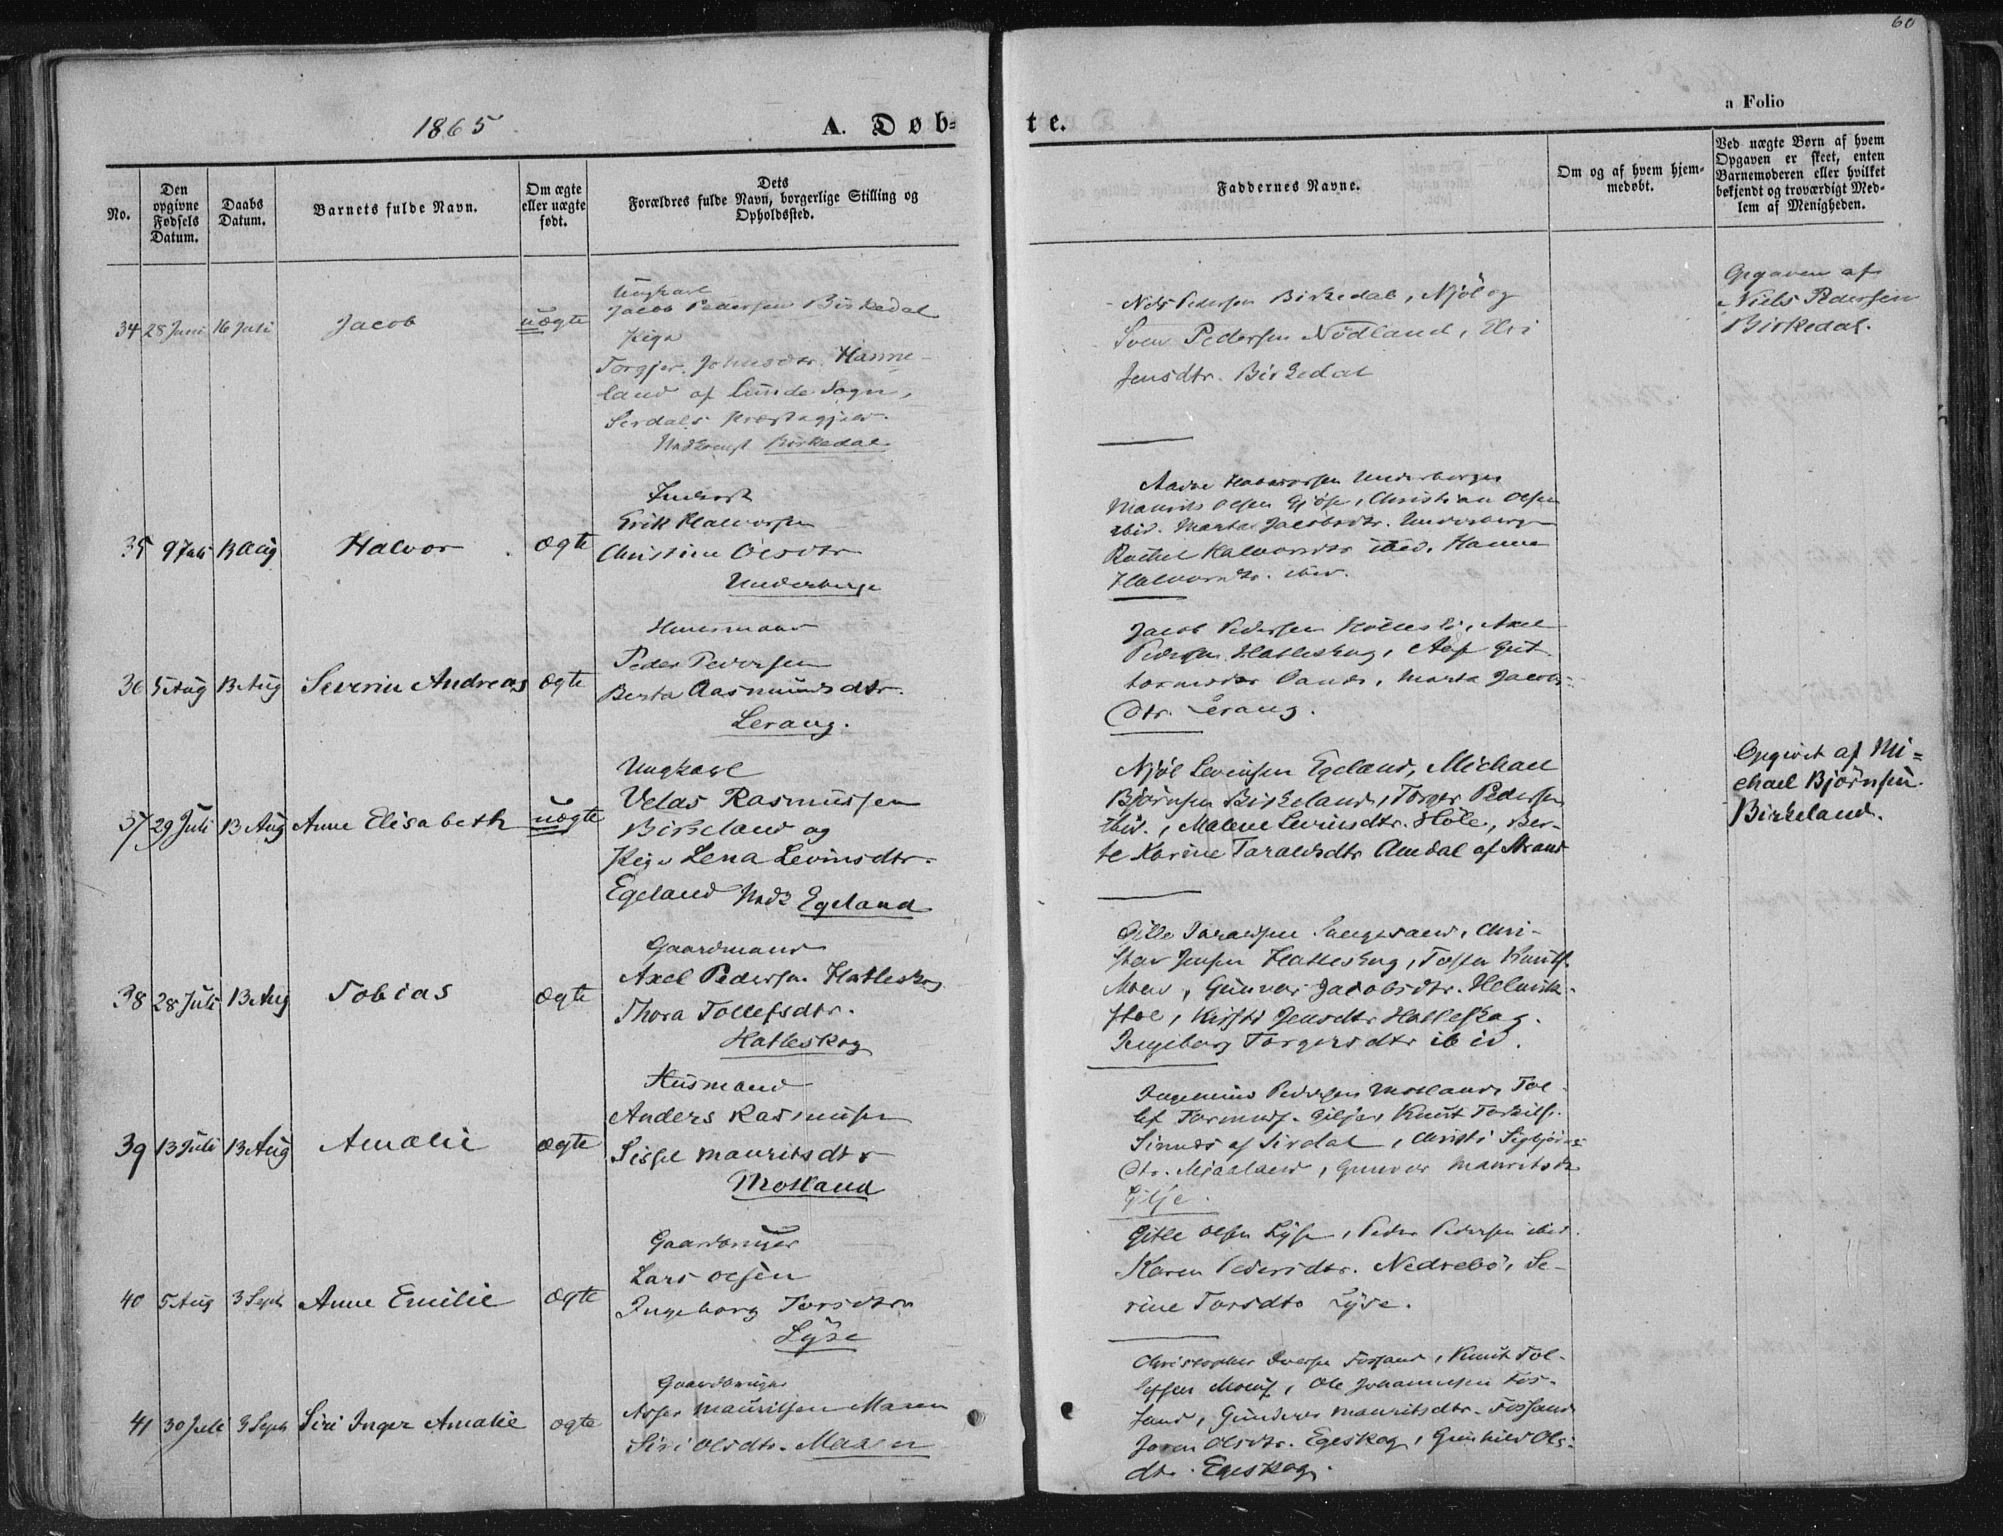 60
a Folio
1865
A. Døb=
te.
No.
Den
opgivne
Fødsels
Datum.
Daabs
Datum.
Barnets fulde Navn.
Om ægte
eller uægte
født.
Dets
Forældres fulde Navn, borgerlige Stilling og
Opholdssted.
Faddernes Navne.
Om og af hvem hjem-
medøbt.
Ved uægte Børn af hvem
Opgaven er skeet, enten
Barnemoderen eller hvilket
bekjendt og troværdigt Med-
lem af Menigheden.
34 28 Juni 16 Juli Jacob uægte
Ungkarl
Jacob Pedersen Birkedal
Pige
Torgjer. Johnsdtr. Hanne-
land af Lunde Sogn,
Serdals Præstegjeld.
Birkedal
Niels Pedersen Birkedal, Njøl og
Sven Pedersen Nödland,
Jensdtr. Birkedal
Opgaven af
Niels Pedersen
Birkedal.
35 9 Juli 13 Aug Halvor ægte
Inderst
Erik Halvorsen
Christine Olsdtr
Underberge
Halvorsen Underberge
Maurits Olsen Gjöse, Christian Olsen
ibid. Marta Jacobsdtr. Underberge
Rachel Halvorsdtr ibid. Hanne
Halvorsdtr. ibid.
36 5 Aug 13 Aug Severin Andreas ægte
Huusmand
Peder Pedersen
Berta Aasmundsdtr.
Lerang.
Jacob Pedersen Axel
Pedersen Hatleskog,
Marta Jacobs-
dtr. Lerang.
37 29 Juli 13 Aug Anne Elisabeth uægte
Ungkarl
Velas Rasmussen
Birkeland og
Pige Lena Levinsdtr.
Egeland Egeland
Njöl Levinsen Egeland, Michael
Björnsen Birkeland, Torger Pedersen
ibid., Malene Levinsdtr. Höle, Ber-
te Karine Taraldsdtr Amdal af Strand
Opgivet af Mi=
chael Björnsen
Birkeland.
38 28 Juli 13 Aug Tobias ægte
Gaardmand
Axel Pedersen Hatleskog
Thora Tollefsdtr.
Hatleskog
Taraldsen Chri-
Jensen Hatleskog,
Moen, Gunvor Jacobsdtr. Helmik-
stöl, Kristi Jensdtr Hatleskog.
Ingeborg Torgersdtr ibid.
39 13 Juli 13 Aug Amalie ægte
Husmand
Anders Rasmusen
Sissel Mauritsdtr
Motland
Pedersen Motland, Tol-
lef Gilje, Knut
Sinnes af Sirdal, Christi Sigbjörns-
dtr. Mjaaland, Gunvor Mauritsdtr
Gilje.
40 5 Aug 3 Septr Anne Emilie ægte
Gaardbruger
Lars Olsen
Ingeborg Torsdtr
Lyse
Gitle Olsen Lyse, Peder Pedersen ibid.
Karen Pedersdtr. Nedrebö, Se-
rine Torsdtr Lyse.
41 30 Juli 3 Septr Siri Inger Amalie ægte
Gaardbruger
Asser Mauritsen Maren
Siri Olsdtr. Maren
Christopher Iversen Fossand, Knut Tol-
lefsen Moen, Ole Johannesen Fos-
sand, Mauritsdtr. Fossand
Joren Olsdtr. Egeskog, Gunhild Ols-
dtr. Egeskog.